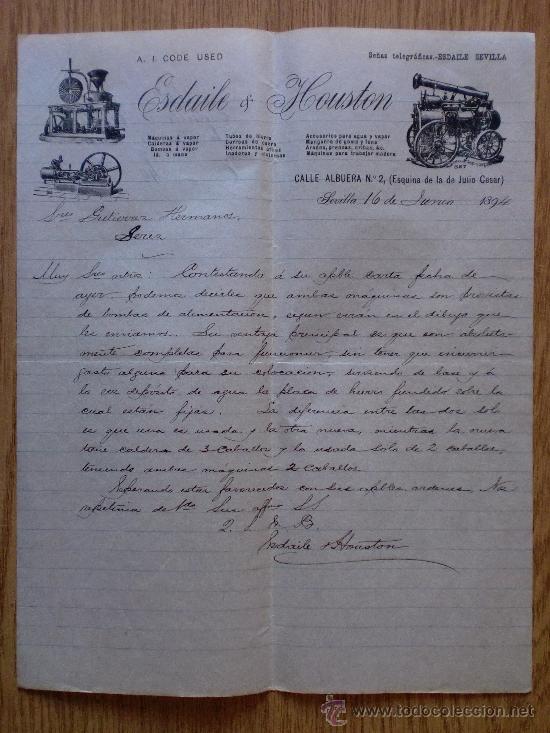 A. I. CODE USED
Señas telegráficas.-ESDAILE SEVILLA
Esdaile & Houston
Máquinas á vapor
Calderas á vapor
Bombas á vapor
Id. á mano
Tubos de hierro
Correas de cuero
Herramientas
Accesorios para agua y vapor
Manguera de goma y lona
Arados, prensas, cribas, &c.
Máquinas para trabajar madera
CALLE ALBUERA N.º 2, (Esquina de la de Julio Cesar)
Sevilla 16 de Junio 1894
Sres Gutierrez Hermanos,
Jerez
Muy Sres ntros: Contestando á su apble carta fecha de
ayer, podemos decirles que ambas maquinas son provistas
de bombas de alimentacion, segun verán en el dibujo que
les enviamos. Su ventaja principal es que son absoluta-
mente completas para funcionar, sin tener que incurrir
gasto alguno para su colocacion, sirviendo de base y á
la vez depósito de agua la placa de hierro fundido sobre la
cual están fijas. La diferencia entre las dos solo
es que una es usada y la otra nueva, mientras la nueva
tiene caldera de 3 caballos y la usada solo de 2 caballos,
teniendo ambas máquinas 2 caballos.
Esperando estar favorecidos con sus apbles ordenes, Nos
repetimos de Vds Sus affmo SS
Q. B.
Esdaile & Houston
todocoleccion
www.todocoleccion.net